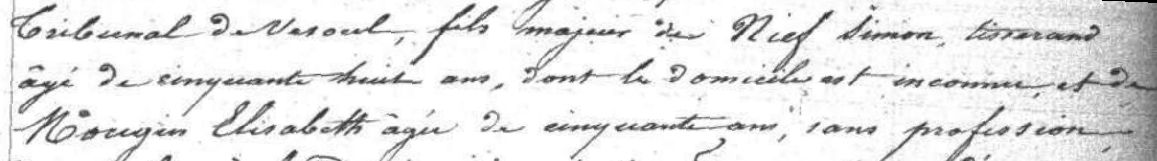 Tribunal de Vesoul, fils majeur de Nief Simon, tisserand
âgé de cinquante huit ans, dont le domicile est inconnu, et de
Mougin Elisabeth âgée de cinquante ans, sans profession